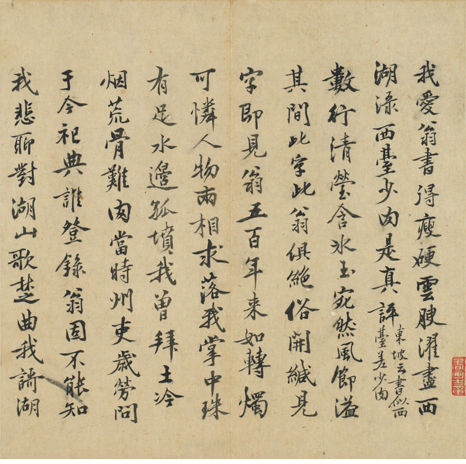 我愛翁書得瘦硬雲腴濯盡西
湖淥西臺少肉是真評
東坡云書似西
臺差少肉
數行清瑩含冰玉宛然風節溢
其間此字此翁俱絕俗開緘見
字即見翁五百年来如轉燭
可憐人物兩相求落我掌中珠
有足水邊孤墳我曾拜土冷
烟荒骨難肉當時州吏歲勞問
于今祀典誰登錄翁固不能知
我悲聊對湖山歌楚曲我湖